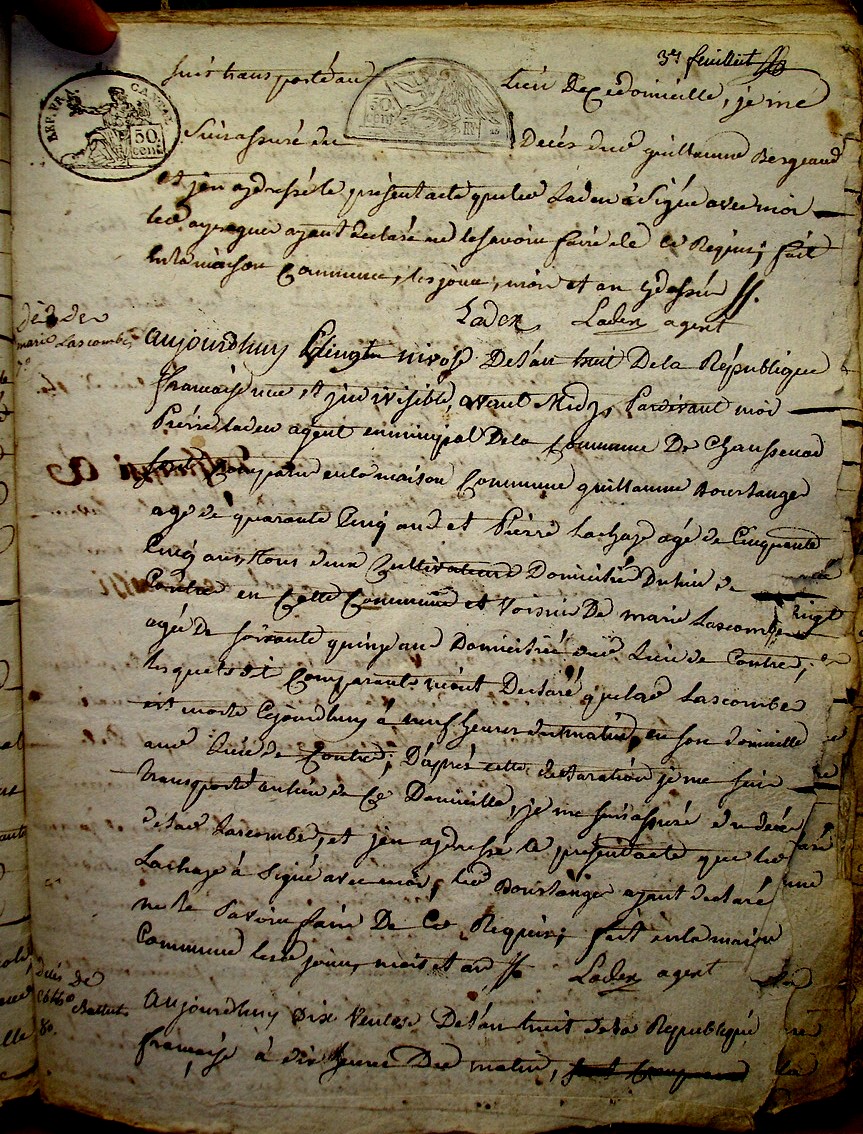 3e feuillet
suis transporté au lieu de ce domicille, je me
REP. FRA. CANTAL 50 cent
50 cent
suis assuré du décès dud guillaume Bergeaud
et j'en ay dressé le présent acte que led Laden à signé avec moi
led ayant declaré ne le savoir faire de ce Requis; fait
en la maison Commune, les jour, mois et an ydessus
Laden Laden agent
décès de
marie Lascombe
7e
aujourdhuy nivose De l'an huit De la République
française une et indivisible, avant Midy, Pardevant moi
Pierre Laden agent municipal De la Commune De Chaussenac
Comparu en la maison Commune guillaume Boulanger
agé de quarante Cinq ans et Pierre Lachaze agé de Cinquante
Cinq ans tous deux Cultivateurs Domiciliés Du lieu de
Contre en Cette Commune et voisin De marie Lascombe
agée De soixante quinze ans Domiciliée aud Lieu de Contre,
lesquels dt Comparants m'ont Declaré que lad Lascombe
est morte Cejourdhuy à neuf heures du matin, en son domicille
aud lieu de Contre; D'après cette declaration je me suis
transporté au lieu de Ce Domicille, je me suis assuré du décès
de lad Lascombe, et j'en ay dressé le présent acte que led
Lachaze à signé avec moi, led Boulanger ayant declaré
ne le savoir faire De Ce Requis; fait en la maison
Commune les jour, mois et an
Laden agent
Décès de
Battut
8e
aujourdhuy Dix Ventose De l'an huit de la République
française à dix heures Du matin,